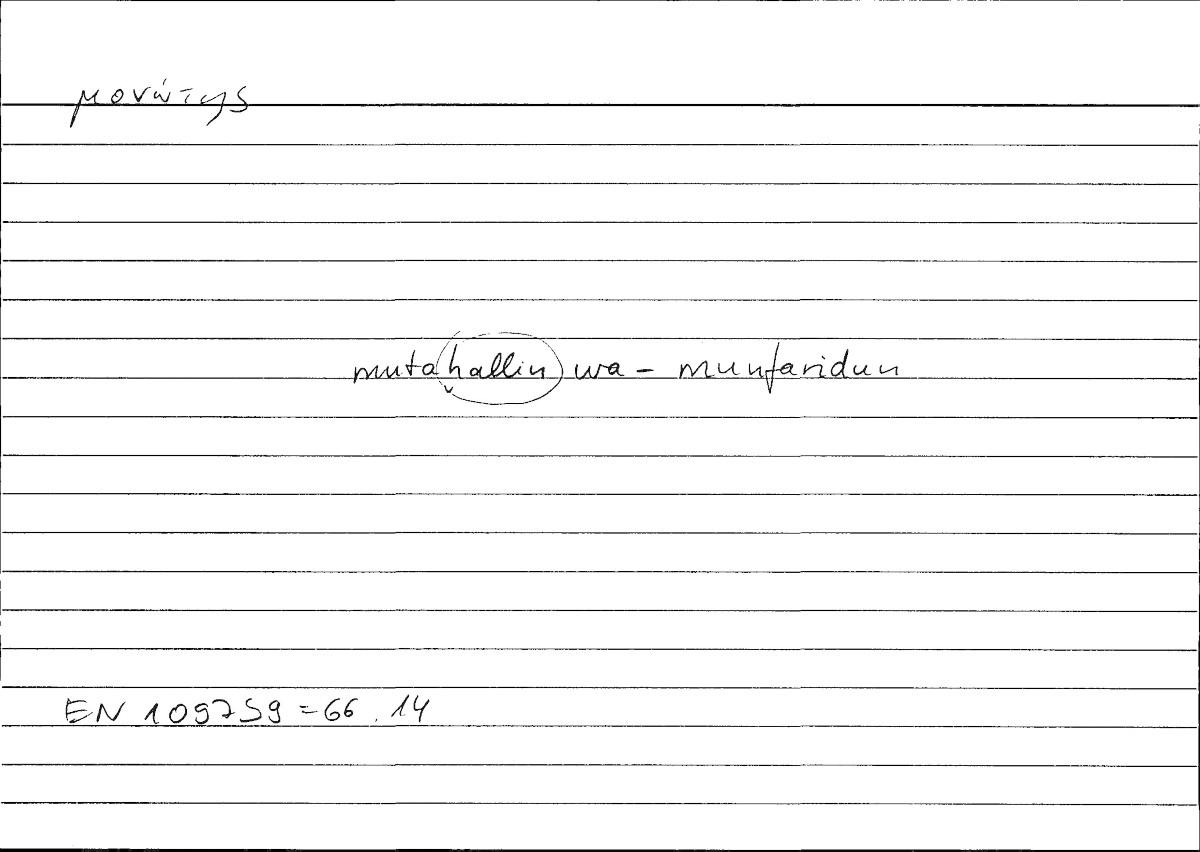 μονώτης
mutaḫallin wa-munfaridun
EN 1097b9 = 66.14